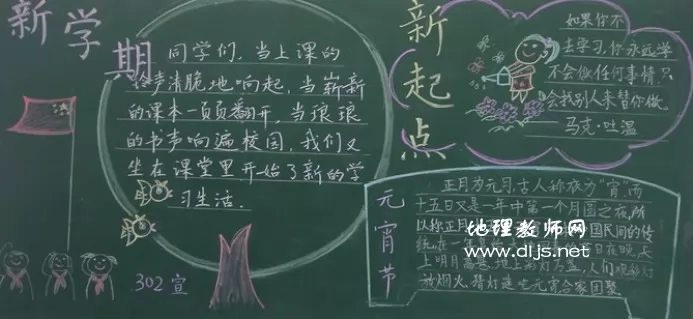 新学期
同学们，当上课的
铃声清脆地响起，当崭新
的课本一页页翻开，当琅琅
的书声响遍校园，我们又
坐在课堂里开始了新的学
习生活.
302宣
新起点
如果你不
去学习,你永远学
不会做任何事情,只
会找别人来替你做。
马克·吐温
元宵节
正月为元月,古人称夜为"宵"而
十五日又是一年中第一个月圆之夜,所
以称正月
国民间的传
统,在一年
日夜晚,天
上明月高
人们观彩灯
放烟火,猜灯谜
元宵合家团聚
地理教师网
www.dljs.net